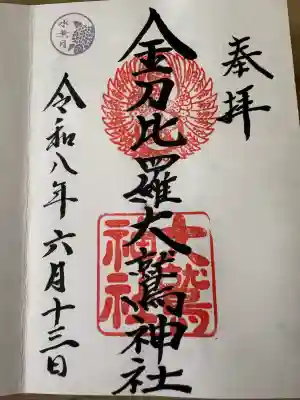 奉拝
金刀比羅大鷲神社
大鷲
神社
令和八年六月十三日
水無月